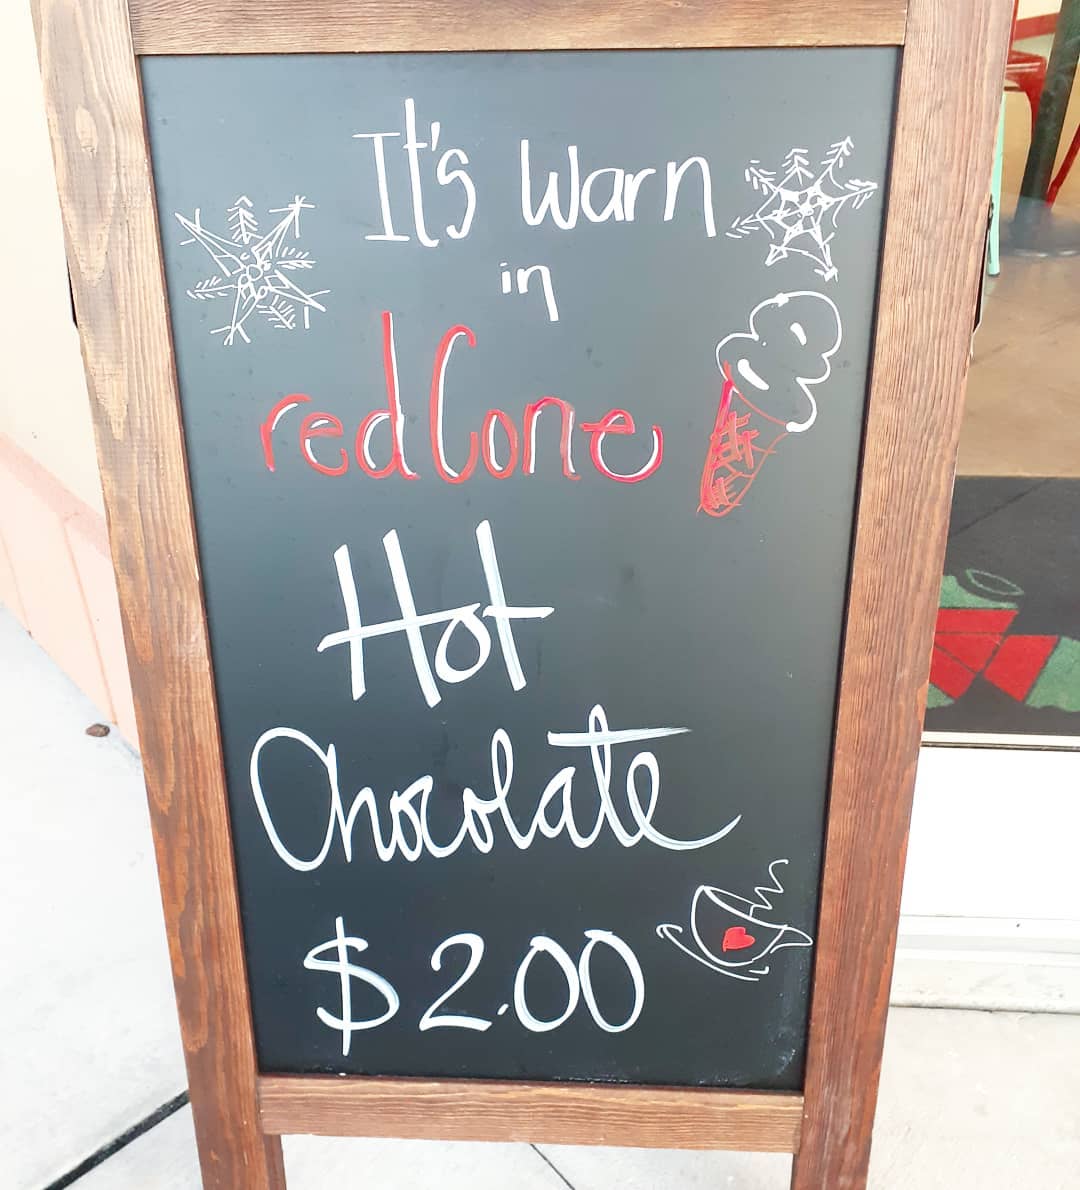 It's Warn
in
redCone
Hot
Chocolate
$2.00